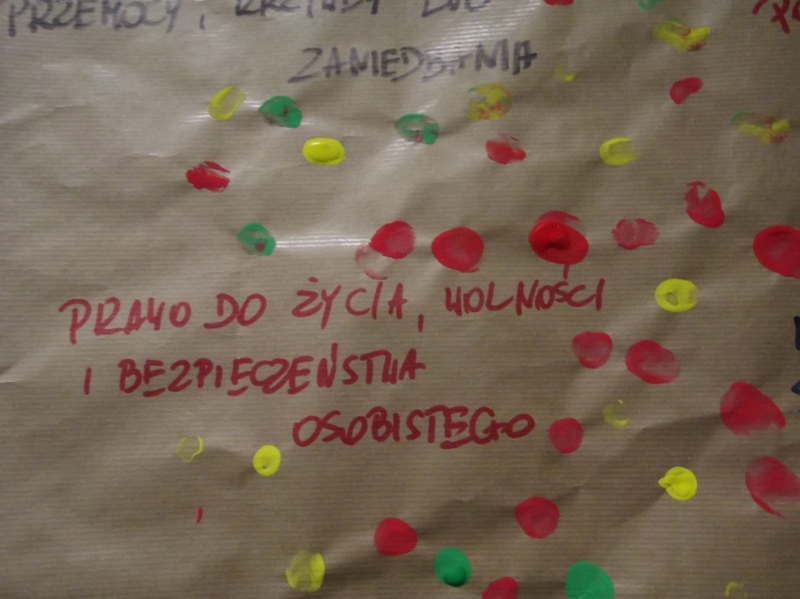 PRZEMOCY, KRZYWDY LUB
ZANIEDBANIA
PRAWO DO ŻYCIA, WOLNOŚCI
I BEZPIECZEŃSTWA
OSOBISTEGO